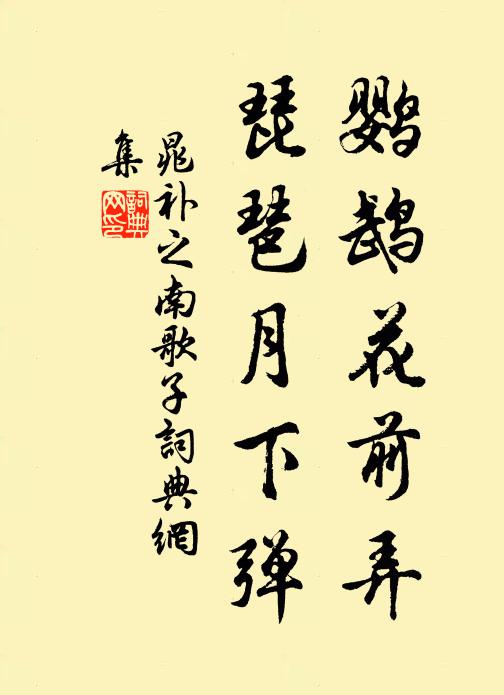 鹦鹉花前弄
琵琶月下弹
晁补之南歌子詞典網
集
詞典
网印